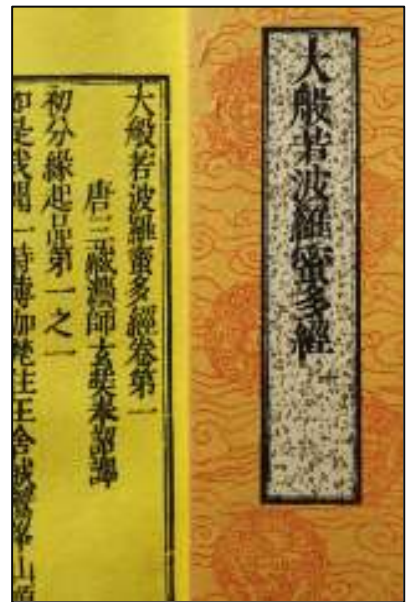 大般若波羅蜜多經
大般若波羅蜜多經卷第一
唐三藏灋師玄奘奉詔譯
初分緣起品第一之一
如是我聞一時薄伽梵住王舍城鷲峯山頂